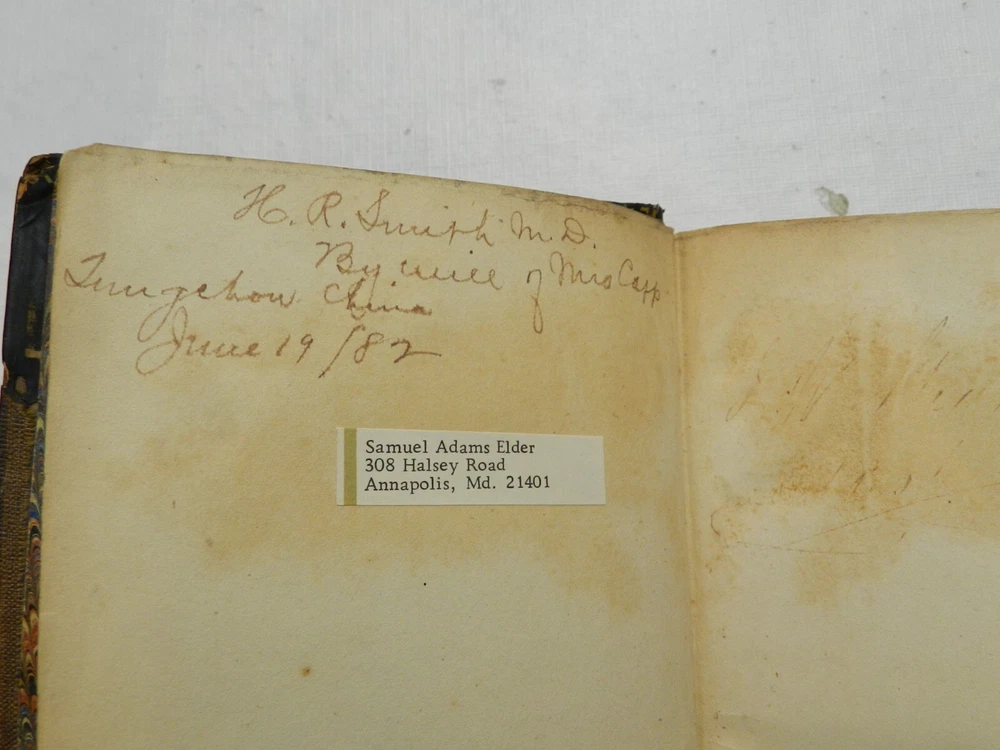 H. R. Smith M. D.
By will of Mrs Capp
Tungchow China
June 19 /82
Samuel Adams Elder
308 Halsey Road
Annapolis, Md. 21401